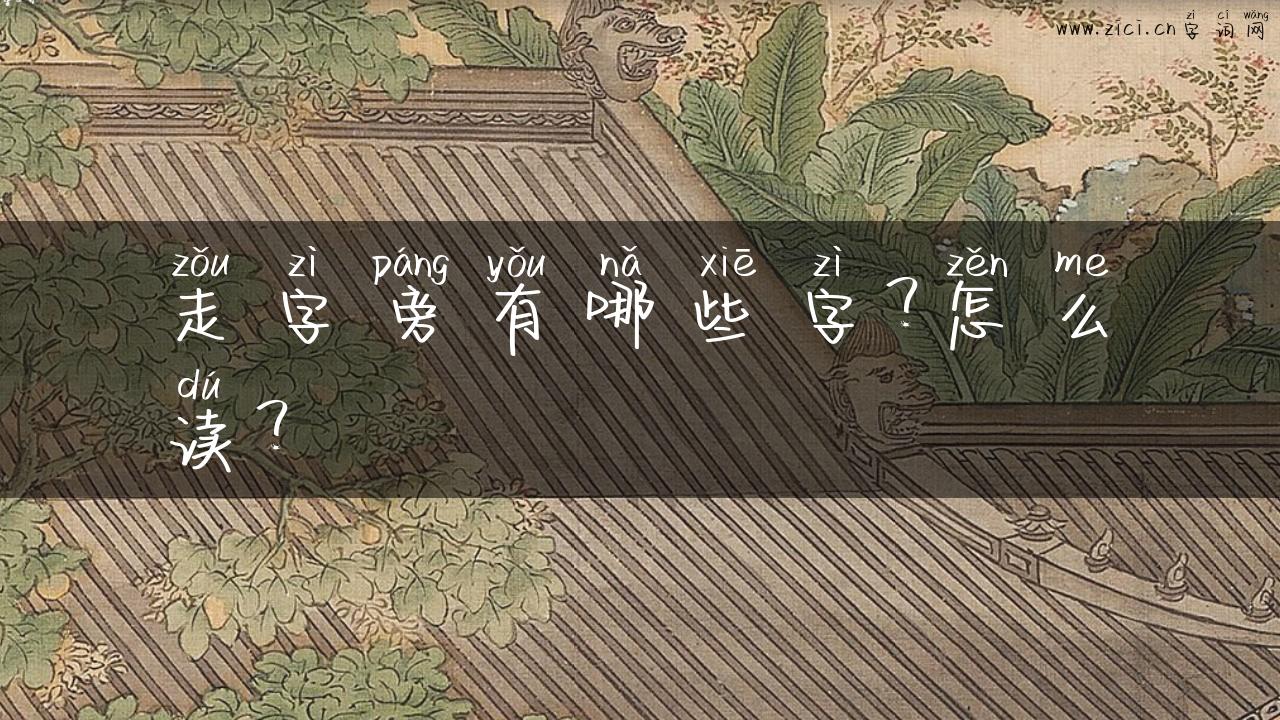 zì cí wǎng
www.zici.cn 字 词 网
zǒu zì páng yǒu nǎ xiē zì zěn me
走 字 旁 有 哪 些 字 ? 怎 么
dú
读 ?